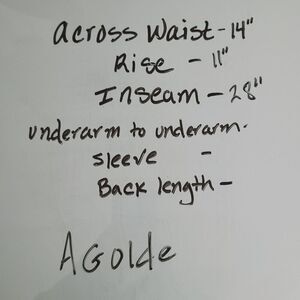 Across Waist - 14"
Rise - 11"
Inseam - 28"
underarm to underarm.
sleeve -
Back length -
AGolde